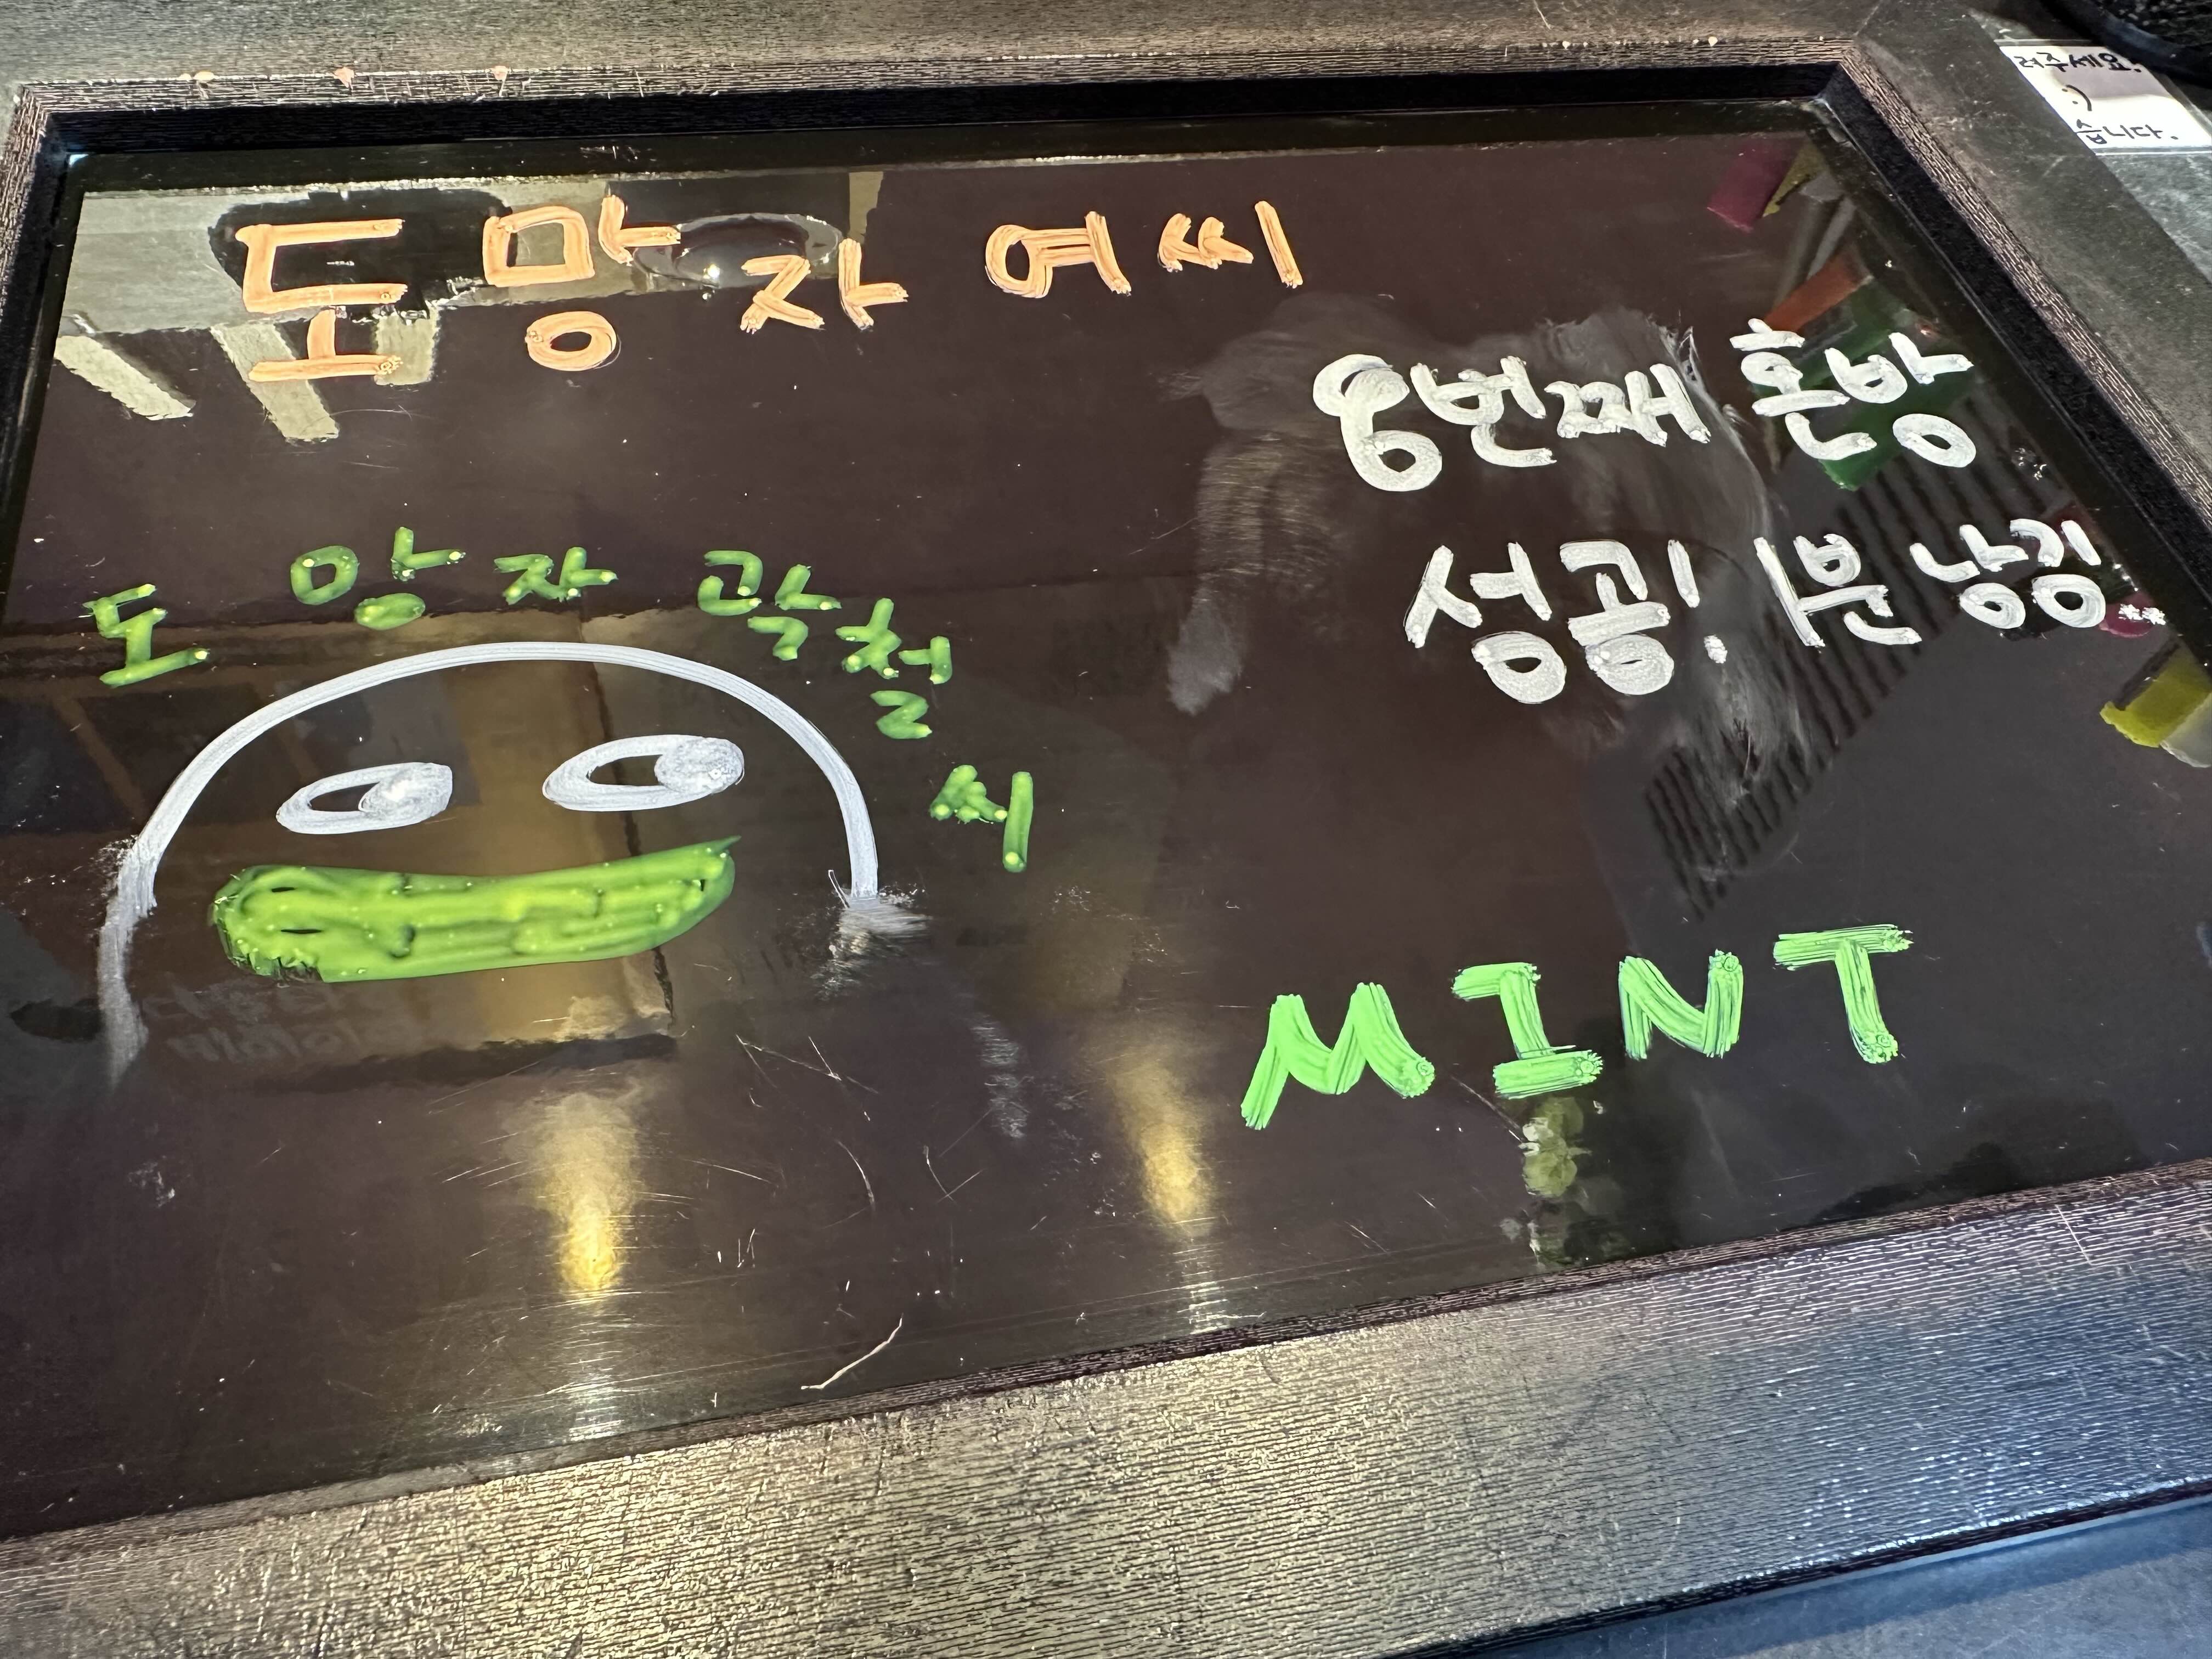 도망자 여씨
6번째 혼방
성공! 1분 낭깅..
도망자 곽철씨
MINT
려주세요!
:)
습니다.